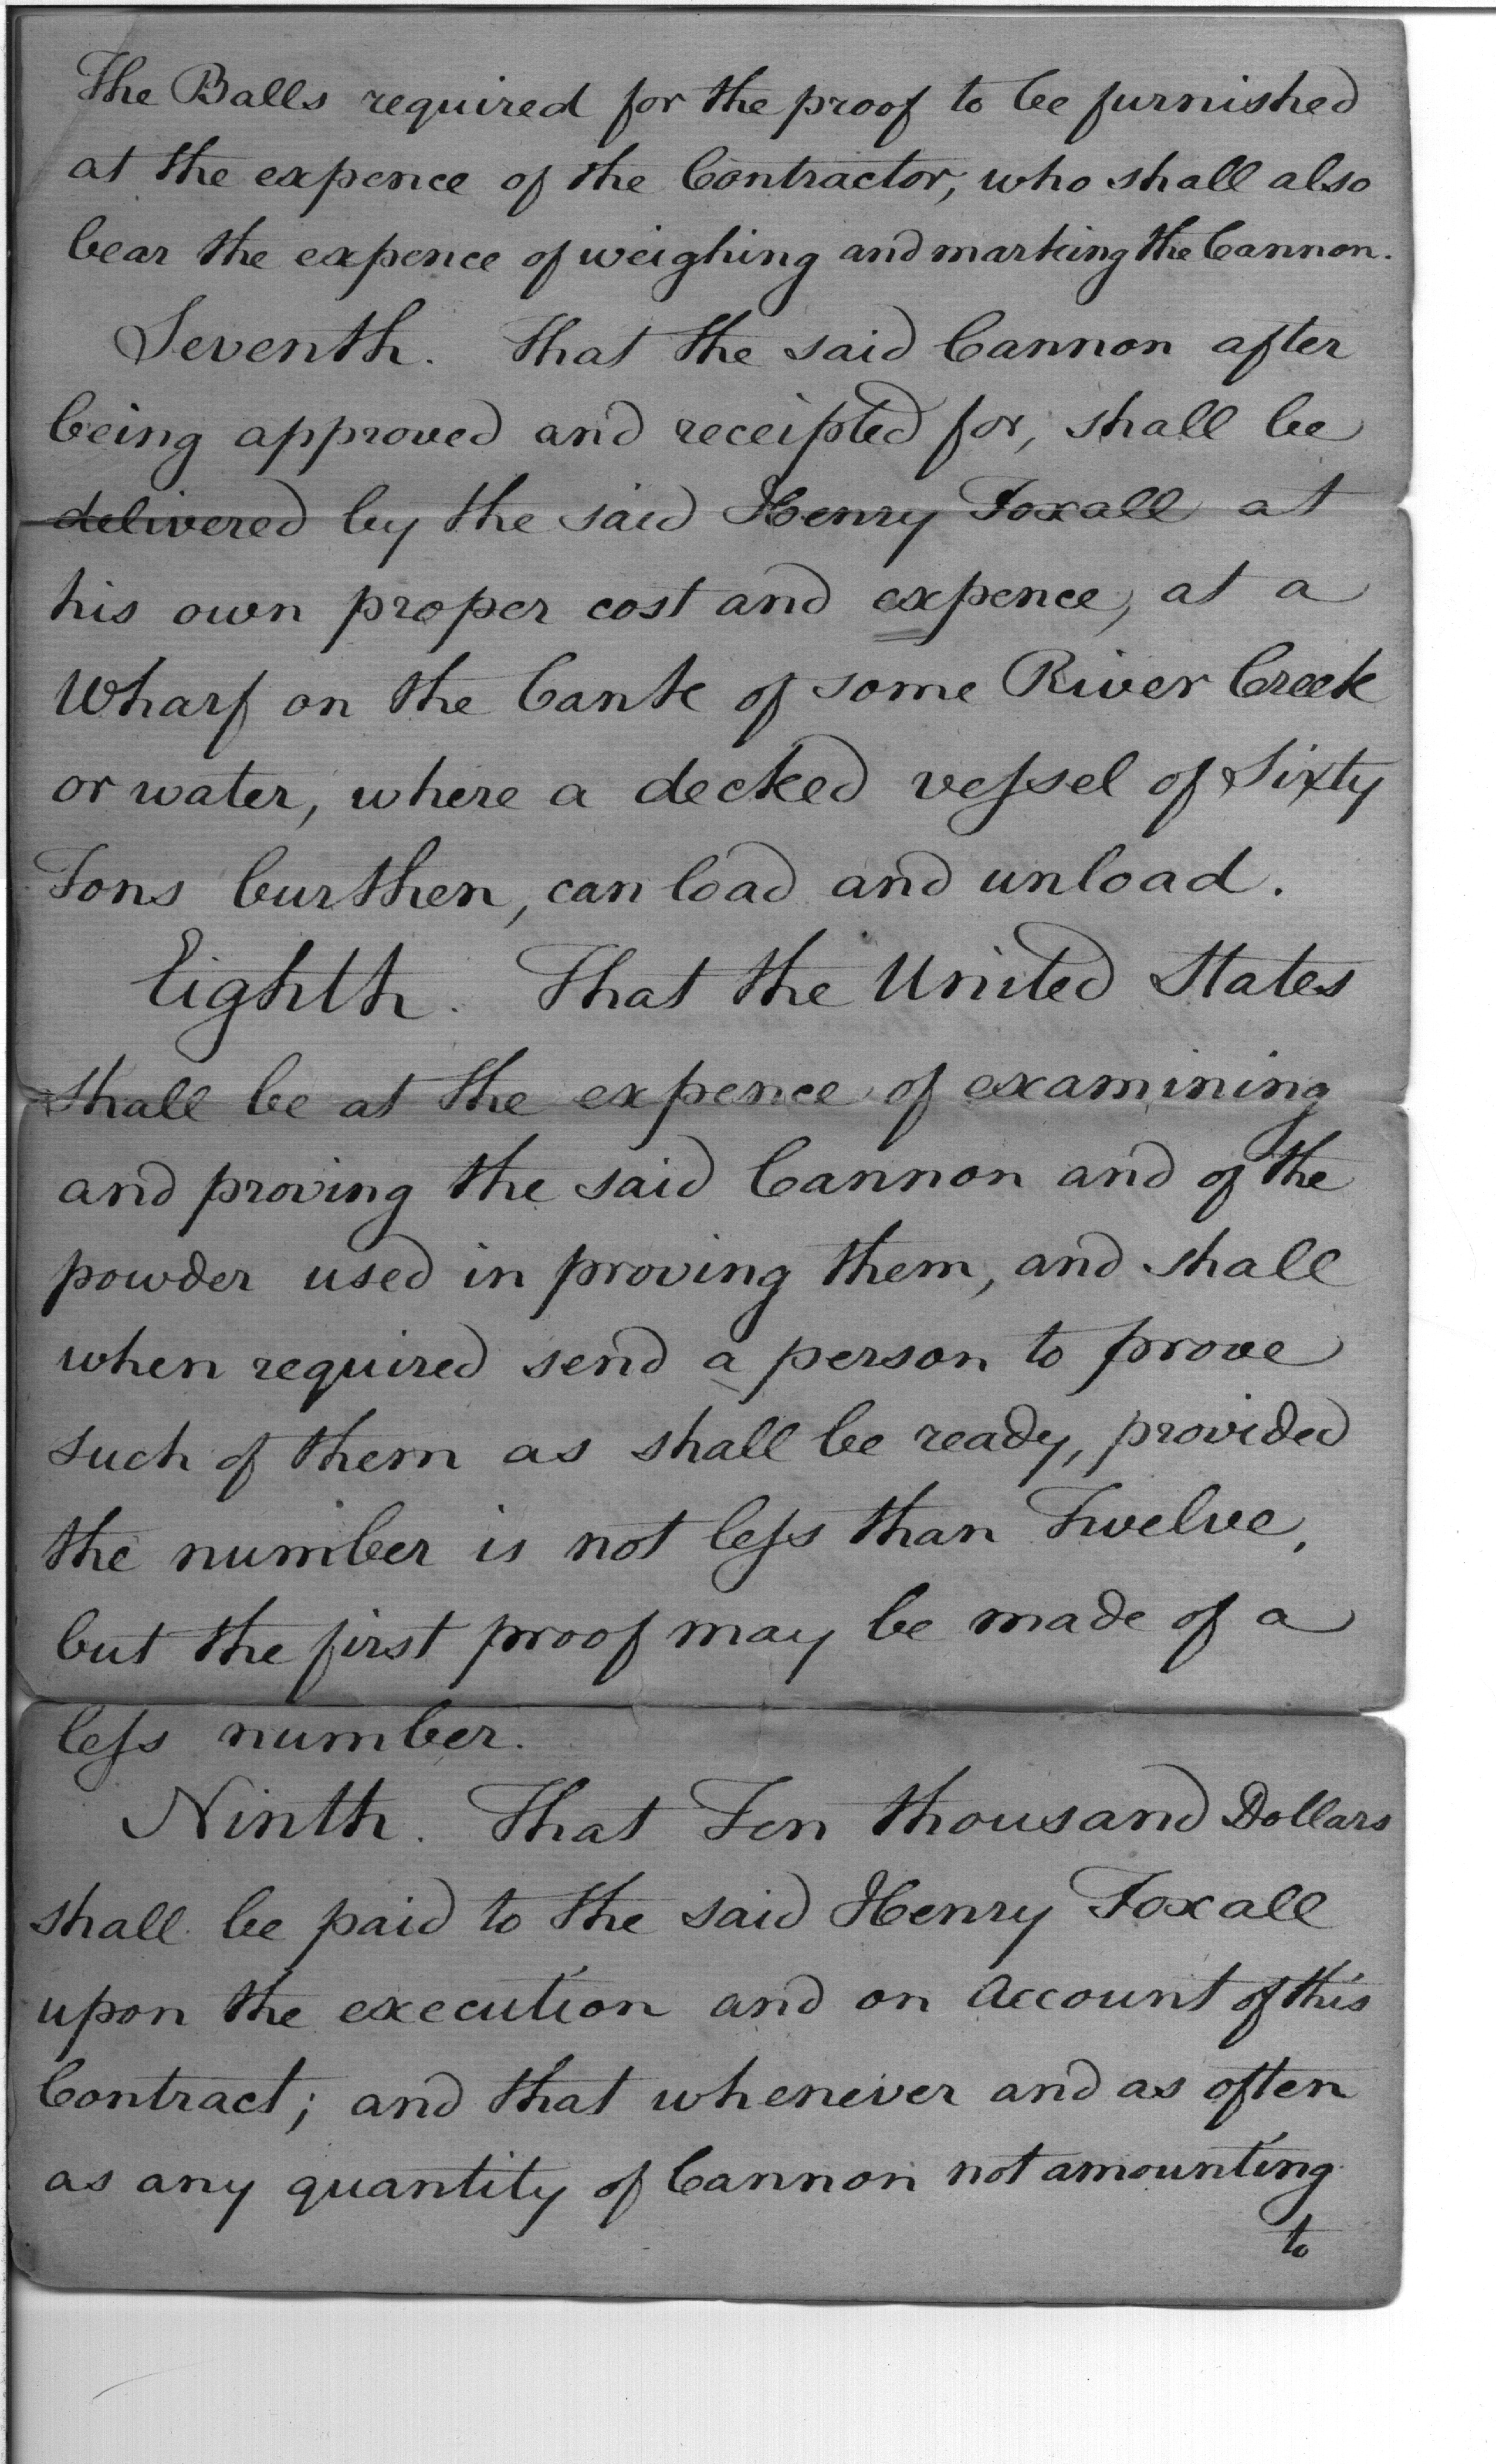 The Balls required for the proof to be furnished
at the expence of the Contractor, who shall also
bear the expence of weighing and marking the Cannon.
Seventh. That the said Cannon after
being approved and receipted for, shall be
delivered by the said Henry Foxall at
his own proper cost and expence, at a
Wharf on the bank of some River Creek
or water, where a decked veſsel of Sixty
Tons burthen, can load and unload.
Eighth. That the United States
shall be at the expence of examining
and proving the said Cannon and of the
powder used in proving them, and shall
when required send a person to prove
such of them as shall be ready, provided
the number is not leſs than Twelve,
but the first proof may be made of a
leſs number.
Ninth. That Ten thousand Dollars
shall be paid to the said Henry Foxall
upon the execution and on Account of this
Contract; and that whenever and as often
as any quantity of Cannon not amounting
to